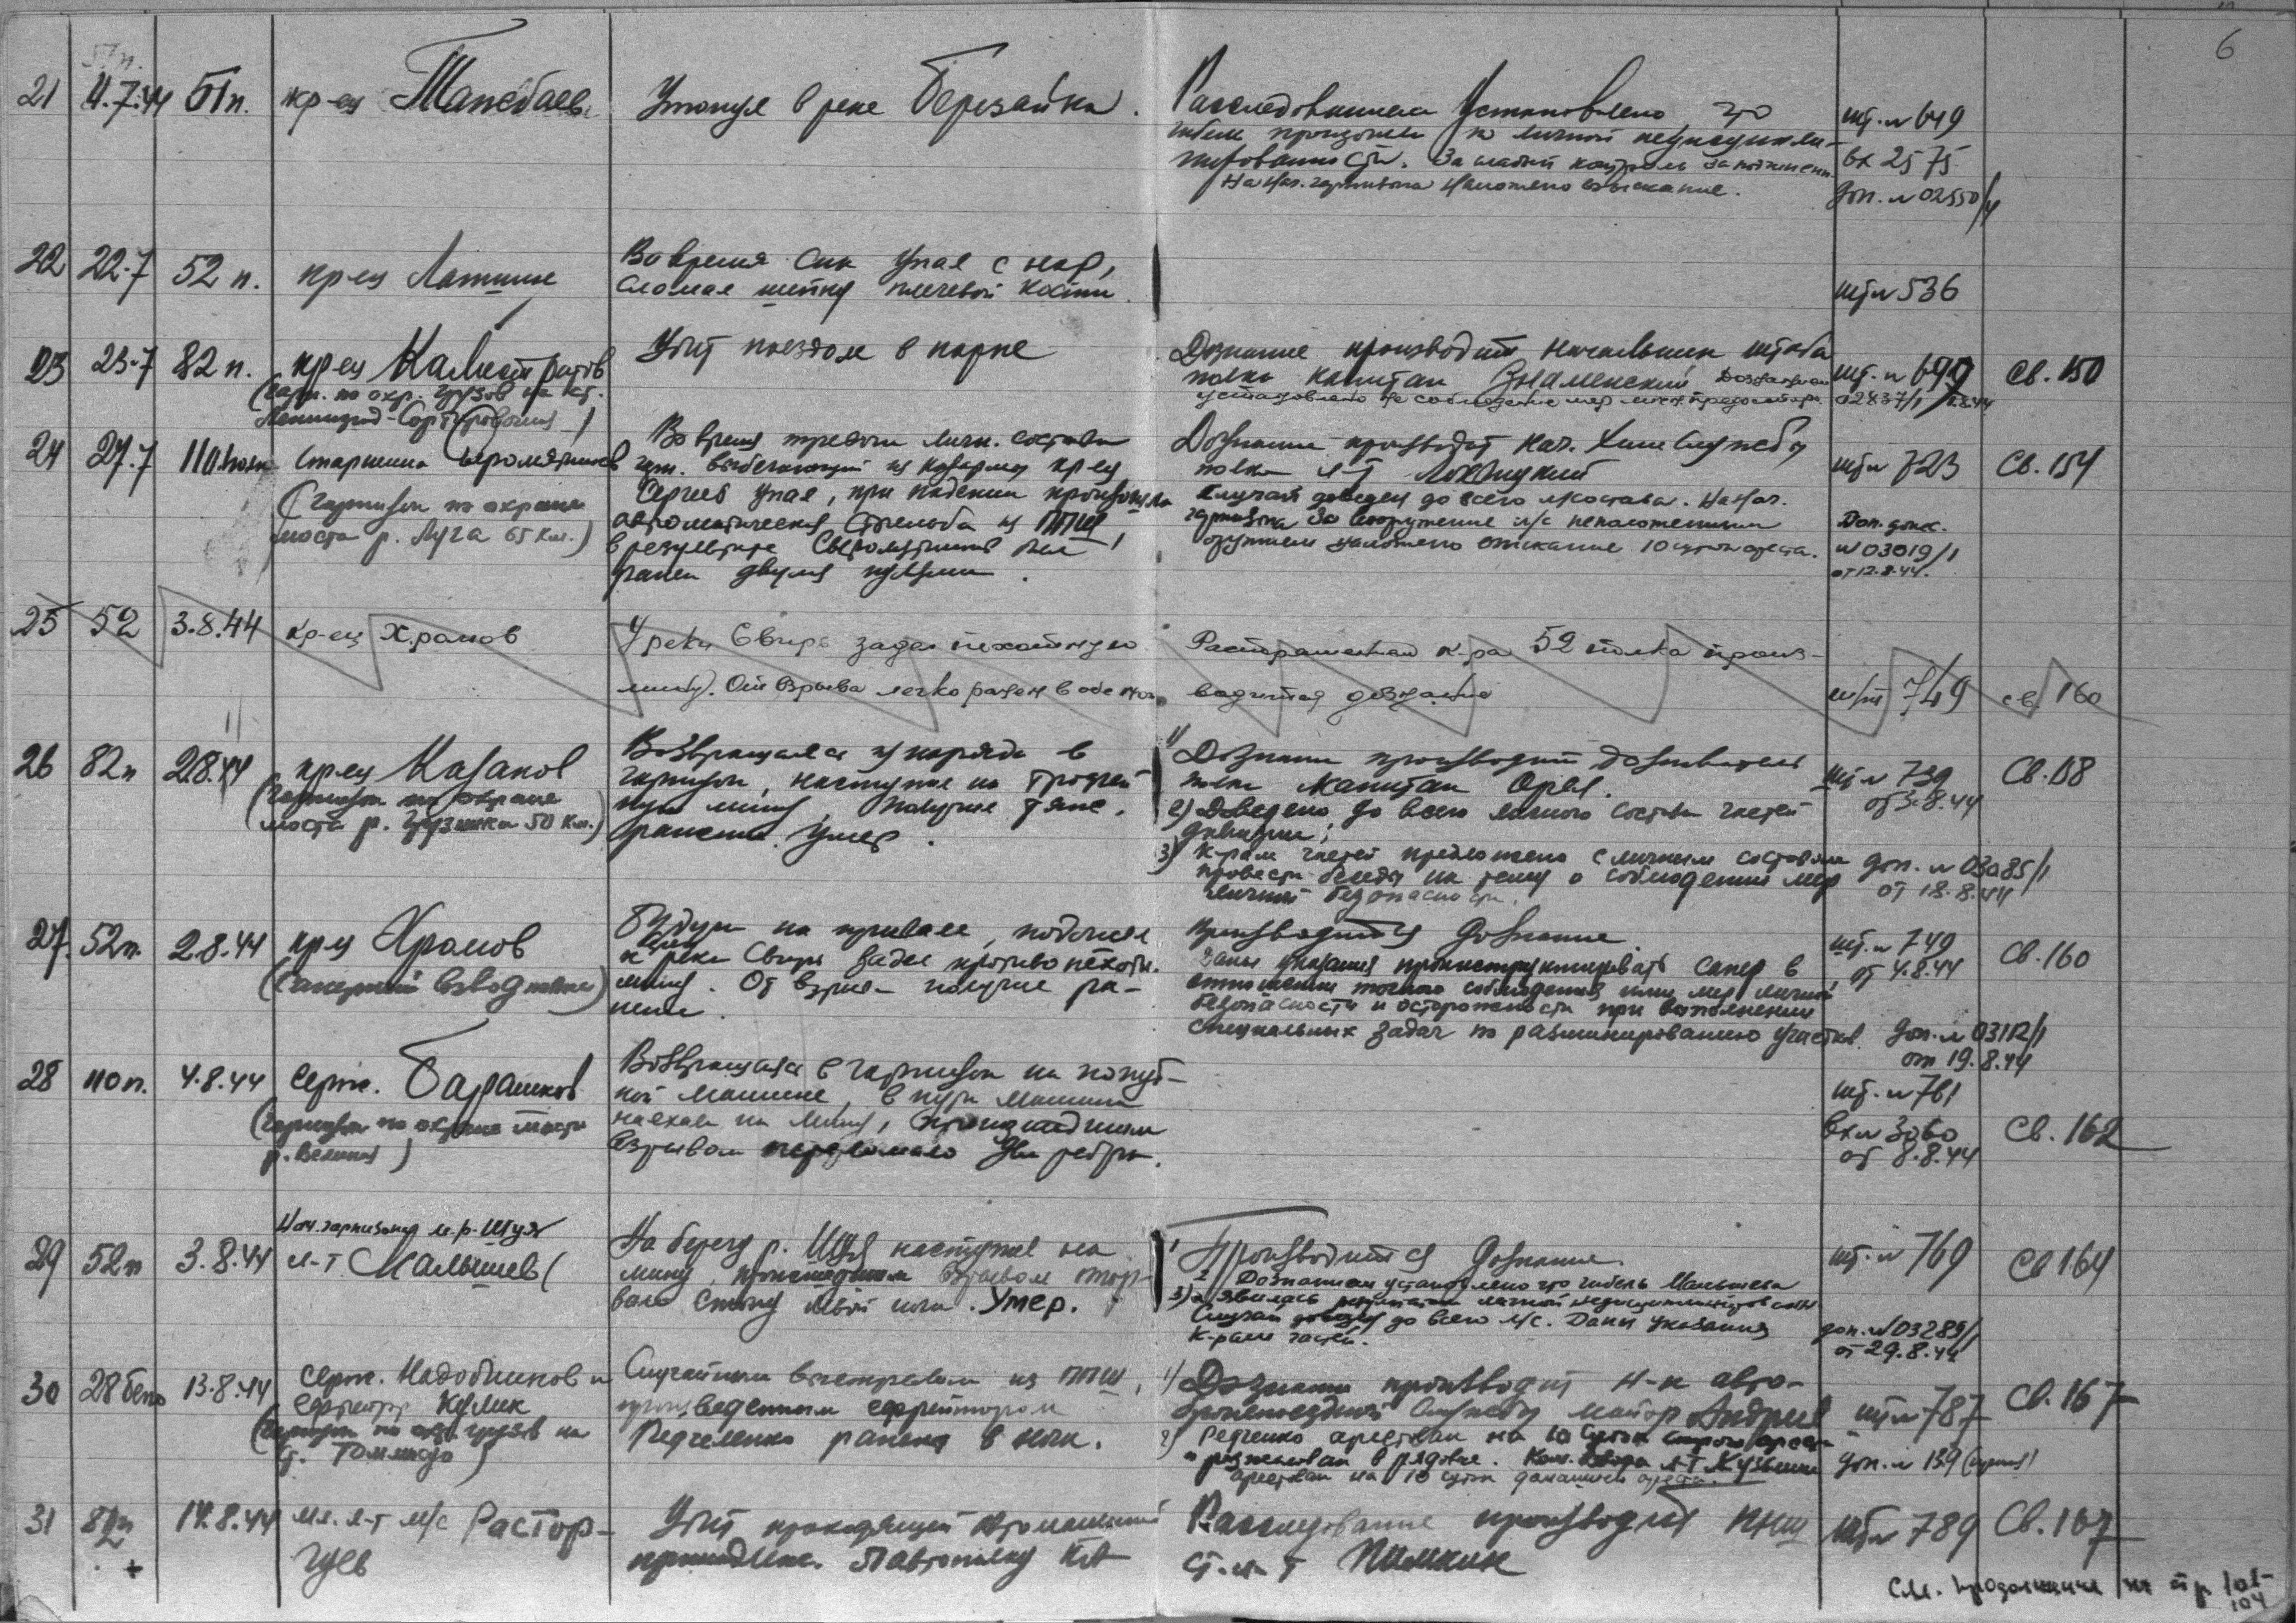 6
21 4.7.44 51 п. кр-ец
Утонул в реке Березайка.
Расследованием установлено, что
гибель произошла по личной недисциплини-
рованности. За слабый контроль за подчинен.
На нач. гарнизона наложено взыскание.
шт. № 649
вх 2575
доп. № 02550/4
22 22.7 52 п. кр-ец
Во время сна упал с нар,
сломал шейку плечевой кости.
шт № 536
23 23.7 82 п. кр-ец Калистратов
(гарн. по охр. грузов на ст.
Ленинград-Сортировочная)
Убит поездом в парке
Дознание производит начальник штаба
полка капитан Знаменский. Дознанием
установлено не соблюдение мер личн. предосторож.
шт. № 699
02837/1
Св. 150
24 27.7 110 полк Старшина
(гарнизон по охране
моста р. Луга 65 км.)
Во время тревоги личн. состава
гарн. выбегающий из казармы кр-ец
Сергеев упал, при падении произошла
автоматическая стрельба из ППШ,
в результате был
ранен двумя пулями.
Дознание производит нач. Химслужбы
полка л-т
Случай доведен до всего л/состава. На нач.
гарнизона за вооружение л/с неположенным
оружием наложено взыскание 10 суток ареста.
шт № 723
Доп. донес.
№ 03019/1
от 12.8.44.
Св. 154
25 52 3.8.44 кр-ец Храмов
У реки Свирь задел пехотную
мину. От взрыва легко ранен в обе ноги
Распоряжением к-ра 52 полка произ-
водится дознание
шт 749
св 160
26 82 п 2.8.44 кр-ец Казаков
(гарнизон по охране
моста р. 50 км.)
Возвращаясь из наряда в
гарнизон, наступил на
мину, получил тяж.
ранение. Умер.
1) Дознание производит дознаватель
полка капитан Орел.
2) Доведено до всего личного состава частей
дивизии;
3) К-рам частей предложено с личным составом
провести беседы на тему о соблюдении мер
личной безопасности.
шт № 739
от 3.8.44
доп. № 03085/1
от 18.8.44
Св. 158
27. 52 п. 2.8.44 кр-ец Храмов
(саперный взвод полка)
Будучи на привале, подошел
к реке Свирь задел противопехотн.
мину. От взрыва получил ра-
нение.
Производится дознание.
Даны указания проинструктировать сапер в
отношении точного соблюдения ими мер личной
безопасности и осторожности при выполнении
специальных задач по разминированию участков.
шт. № 749
от 4.8.44
доп. № 03112/1
от 19.8.44
Св. 160
28 110 п. 4.8.44 серж. Барашков
(гарнизон по охране моста
р. Великая)
Возвращаясь в гарнизон на попут-
ной машине, в пути машина
наехала на мину, происшедшим
взрывом переломало два ребра.
шт. № 761
вх № 3060
от 8.8.44
Св. 162
29 52 п 3.8.44
Нач. гарнизона м. р. Шуя
л-т Малышев
На берегу р. Шуя наступил на
мину, происшедшим взрывом отор-
вало ступню левой ноги. Умер.
1 Производится дознание.
2) Дознанием установлено что гибель Малышева
явилась результатом личной недисциплинированн.
3) Случай доведен до всего л/с. Даны указания
к-рам частей.
шт. № 769
доп. № 03289/1
от 29.8.44
Св 164
30 28 бепо 13.8.44 серж. Надобников и
ефрейтор Кулик
(гарнизон по охр. грузов на
ст. )
Случайным выстрелом из ППШ,
произведенным ефрейтором
ранены в ноги.
1) Дознание производит н-к авто-
бронепоездной службы майор Андреев
2) арестован на 10 суток строгого ареста
и разжалован в рядовые. Ком. взвода л-т
арестован на 10 суток домашнего ареста.
шт № 787
доп. № 139
Св. 167
31 82 п 14.8.44 мл. л-т м/с Растор-
гуев
Убит проходящей автомашиной
принадлеж. автополку КА
Расследование производит ПНШ
ст. л-т
шт № 789
Св. 167
См. продолжение на стр 101-
104